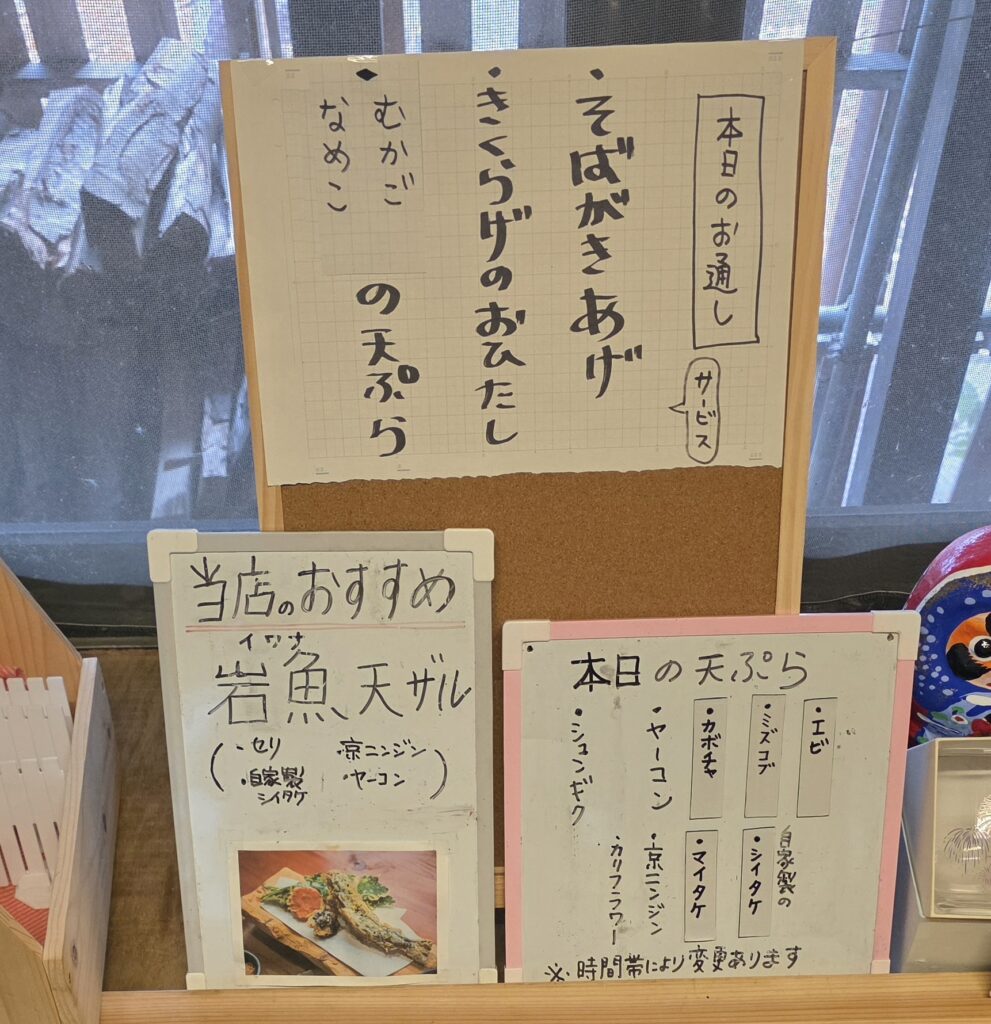 本日のお通し
サービス
・そばがきあげ
・きくらげのおひたし
◆むかご
なめこ
の天ぷら
当店のおすすめ
イワナ
岩魚天ザル
(・セリ
・自家製
シイタケ
・京ニンジン
・ヤーコン)
本日の天ぷら
・エビ
・ミズコブ
・カボチャ
・ヤーコン
・シュンギク
自家製の
・シイタケ
・マイタケ
・京ニンジン
・カリフラワー
※時間帯により変更あります